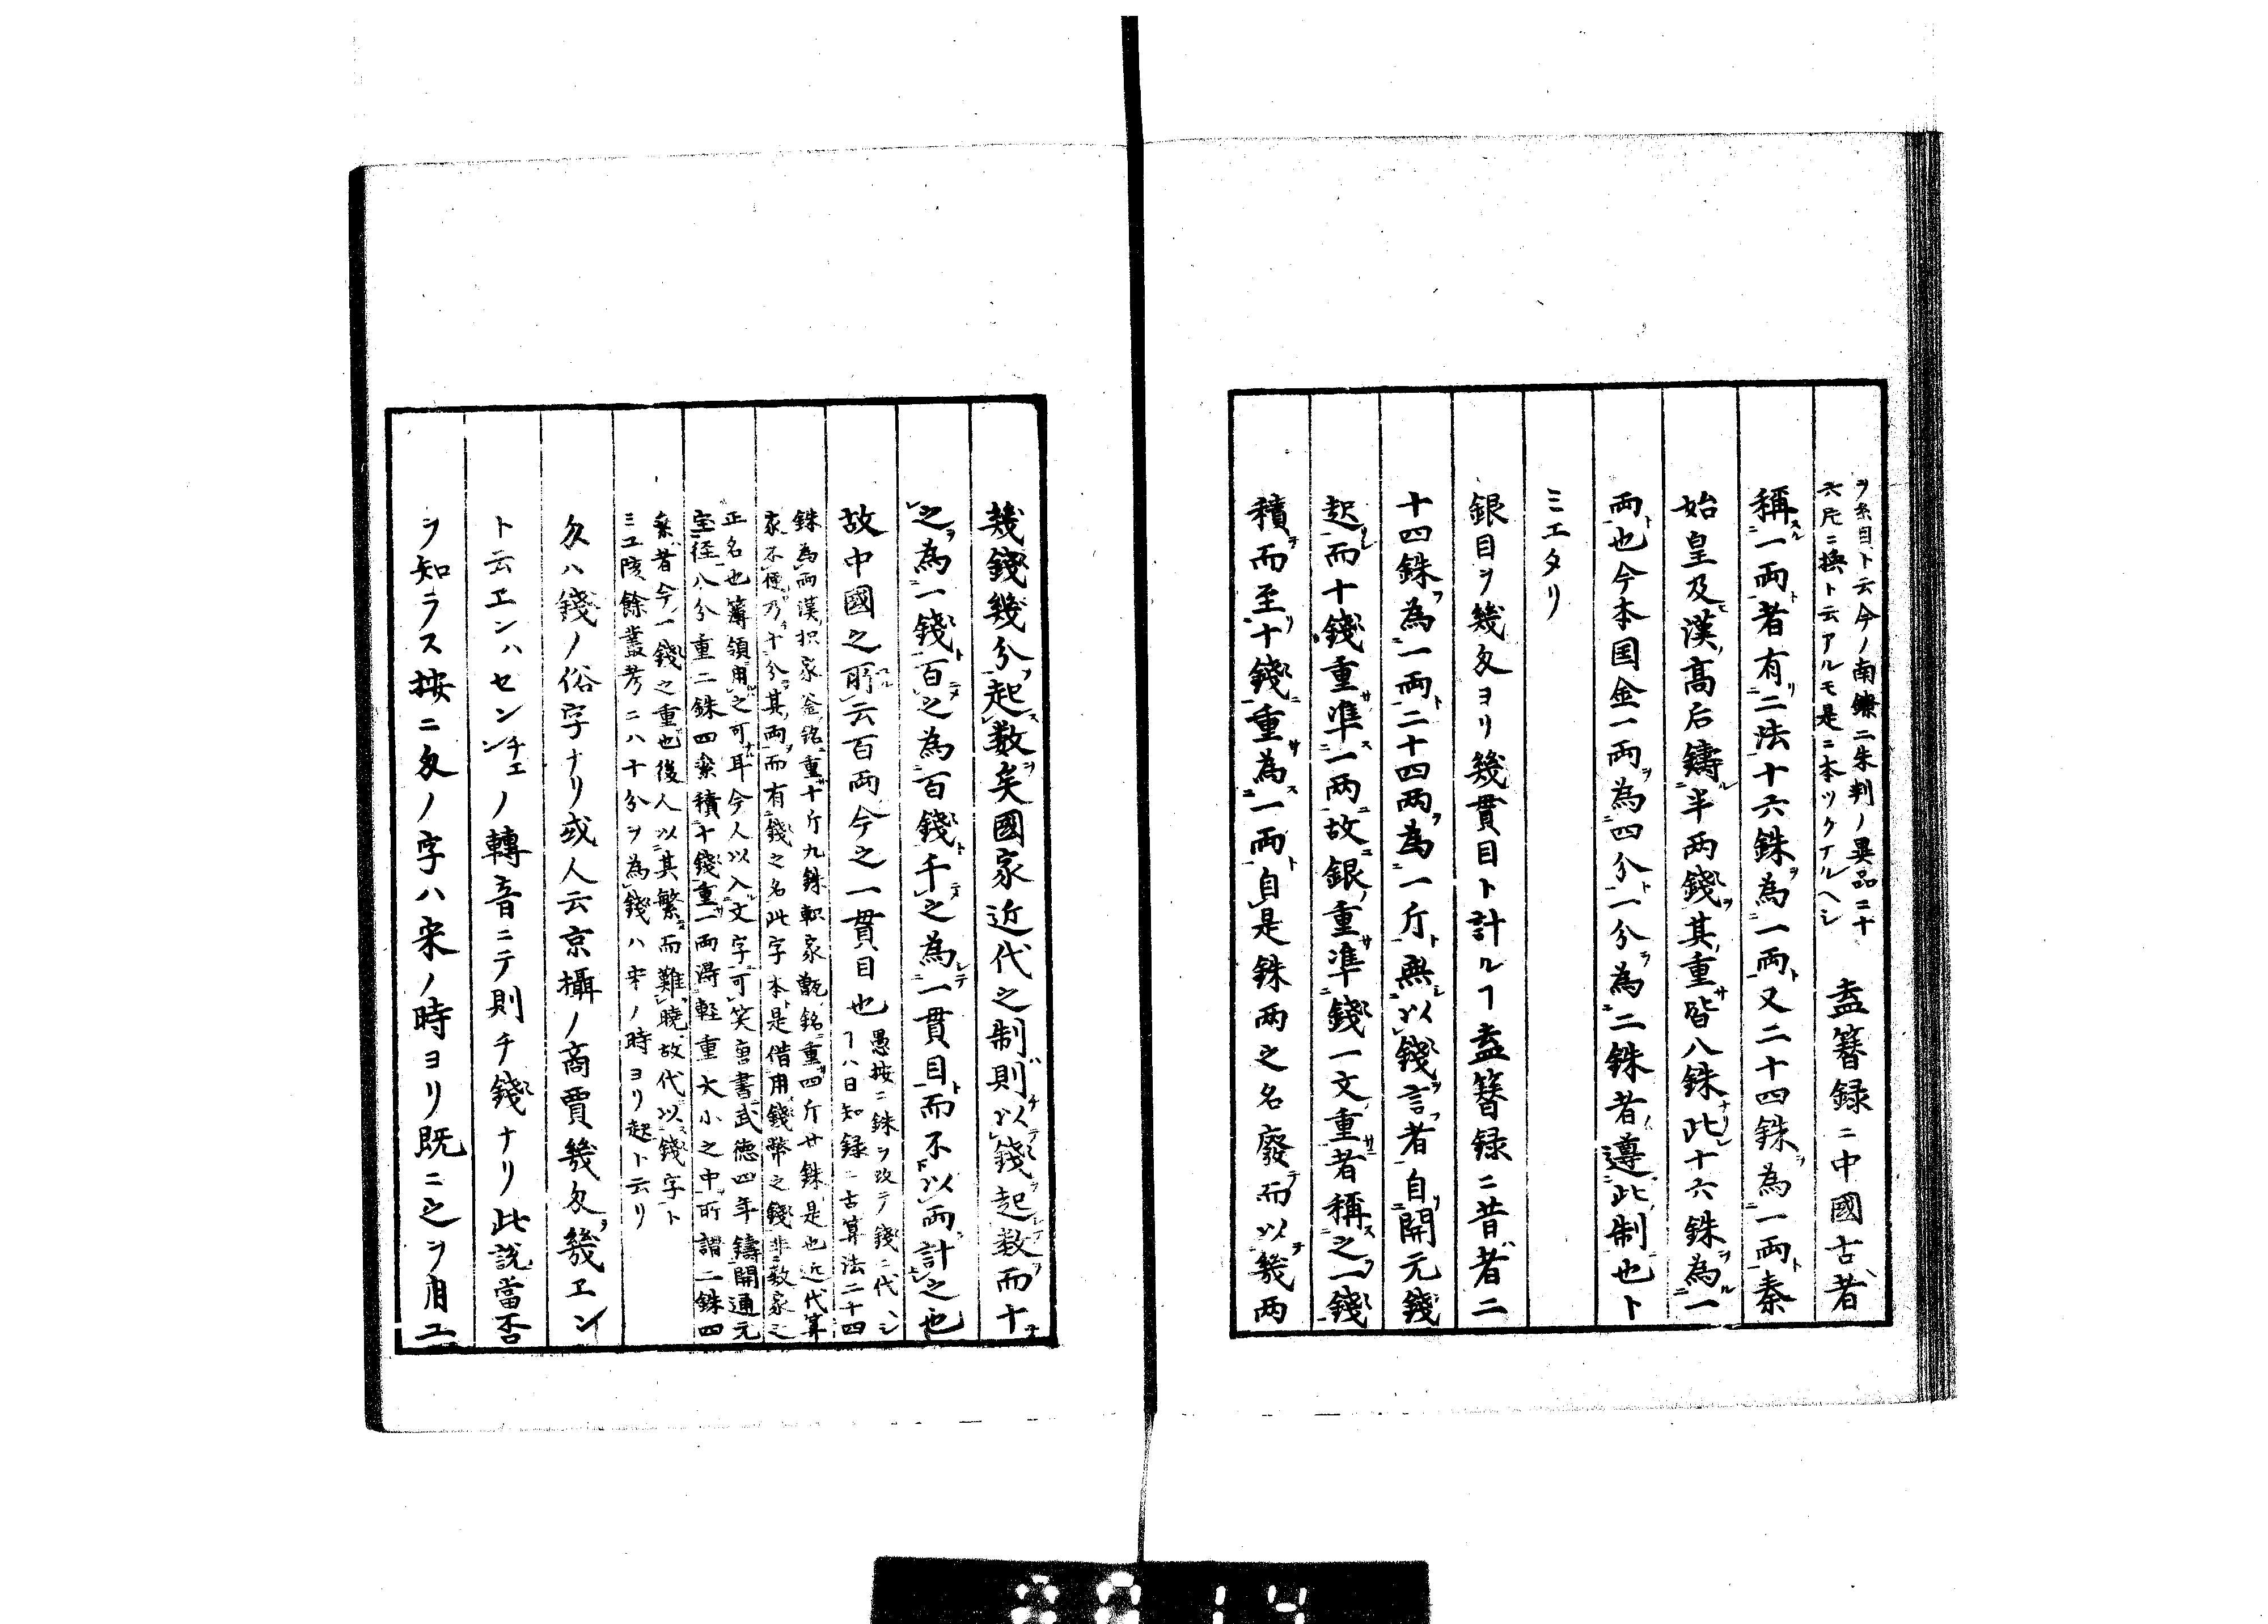 ヲ糸目ト云今ノ南鐐二朱判ノ異品ニ十
六片ニ換ト云アルモ是ニ本ツクナルヘシ
盍簪録ニ中國古者
稱一両者有二法十六銖為一両又二十四銖為一両秦
始皇及漢高后鑄半两錢其重皆八銖此十六銖為一
両也今本国金一両為四分一分為二銖者遵此制也ト
ミエタリ
銀目ヲ幾匁ヨリ幾貫目ト計ルヿ盍簪録ニ昔者二
十四銖為一両二十四两為一斤無以錢言者自開元錢
起而十錢重準一两故銀重準錢一文重者稱之一錢
積而至十錢重為一両自是銖两之名廢而以幾两
幾錢幾分起数矣國家近代之制則以錢起数而十
之為一錢百之為百錢千之為一貫目而不以両計之也
故中國之所云百两今之一貫目也
愚按ニ銖ヲ改テ錢ニ代シ
ヿハ日知録ニ古算法二十四
銖為両漢枳家釜銘重十斤九銖軹家甑銘重四斤廿銖是也近代算
家不便乃十分其両而有錢之名此字本是借用錢幣之錢非数家之
正名也簿領用之可耳今人以入文字可笑唐書武徳四年鑄開通元
宝径八分重二銖四絫積十錢重一両得軽重大小之中所謂二銖四
絫者今一錢之重也後人以其繁而難暁故代以錢字ト
ミエ陔餘叢考ニハ十分ヲ為錢ハ宋ノ時ヨリ起ト云リ
匁ハ錢ノ俗字ナリ或人云京攝ノ商賈幾匁ヲ幾ヱン
ト云ヱンハセンチェンノ轉音ニテ則チ錢ナリ此説當否
ヲ知ラス按ニ匁ノ字ハ宋ノ時ヨリ既ニ之ヲ用ユ